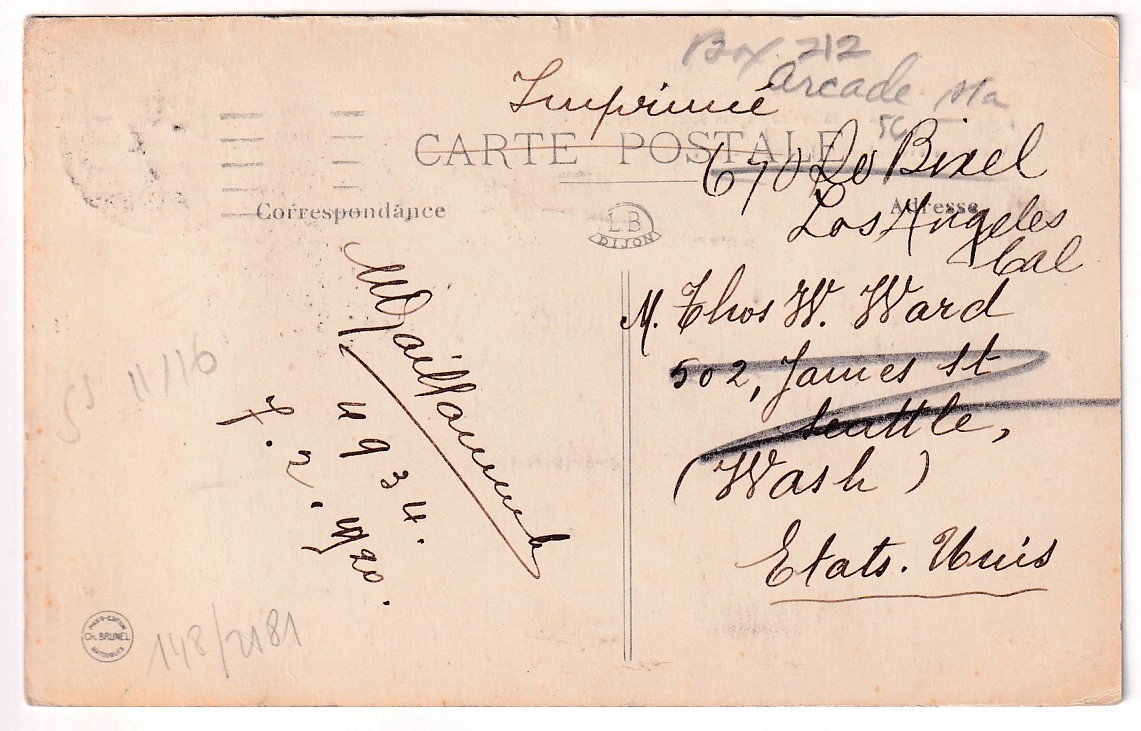 Box 212
Arcade Sta
Imprimé
CARTE POSTALE
670 So Bixel
Los Angeles
Cal
Correspondance
Adresse
LB
DIJON
M. Thos W. Ward
502, James St
Seattle,
(Wash)
Etats. Unis
4934.
7.2.1920.
SS 11/16
148/2181
PHOTO-EDITEUR
CH. BRUNEL
MATOUGUES